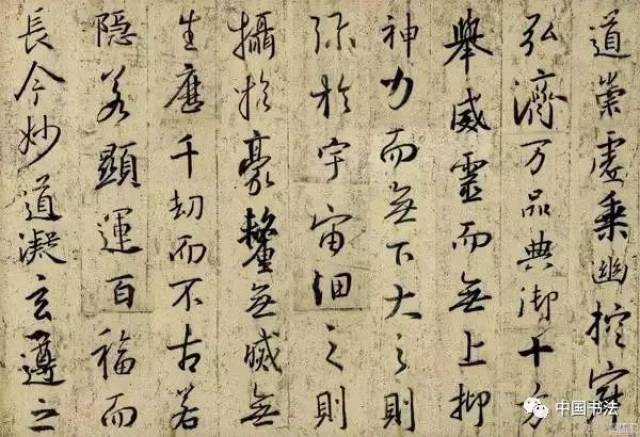 道崇虛乘幽控寂
弘濟万品典御十方
舉威靈而無上抑
神力而無下大之則
弥於宇宙細之則
攝於豪釐無滅無
生歷千劫而不古若
隱若顯運百福而
長今妙道凝玄遵之
中国书法